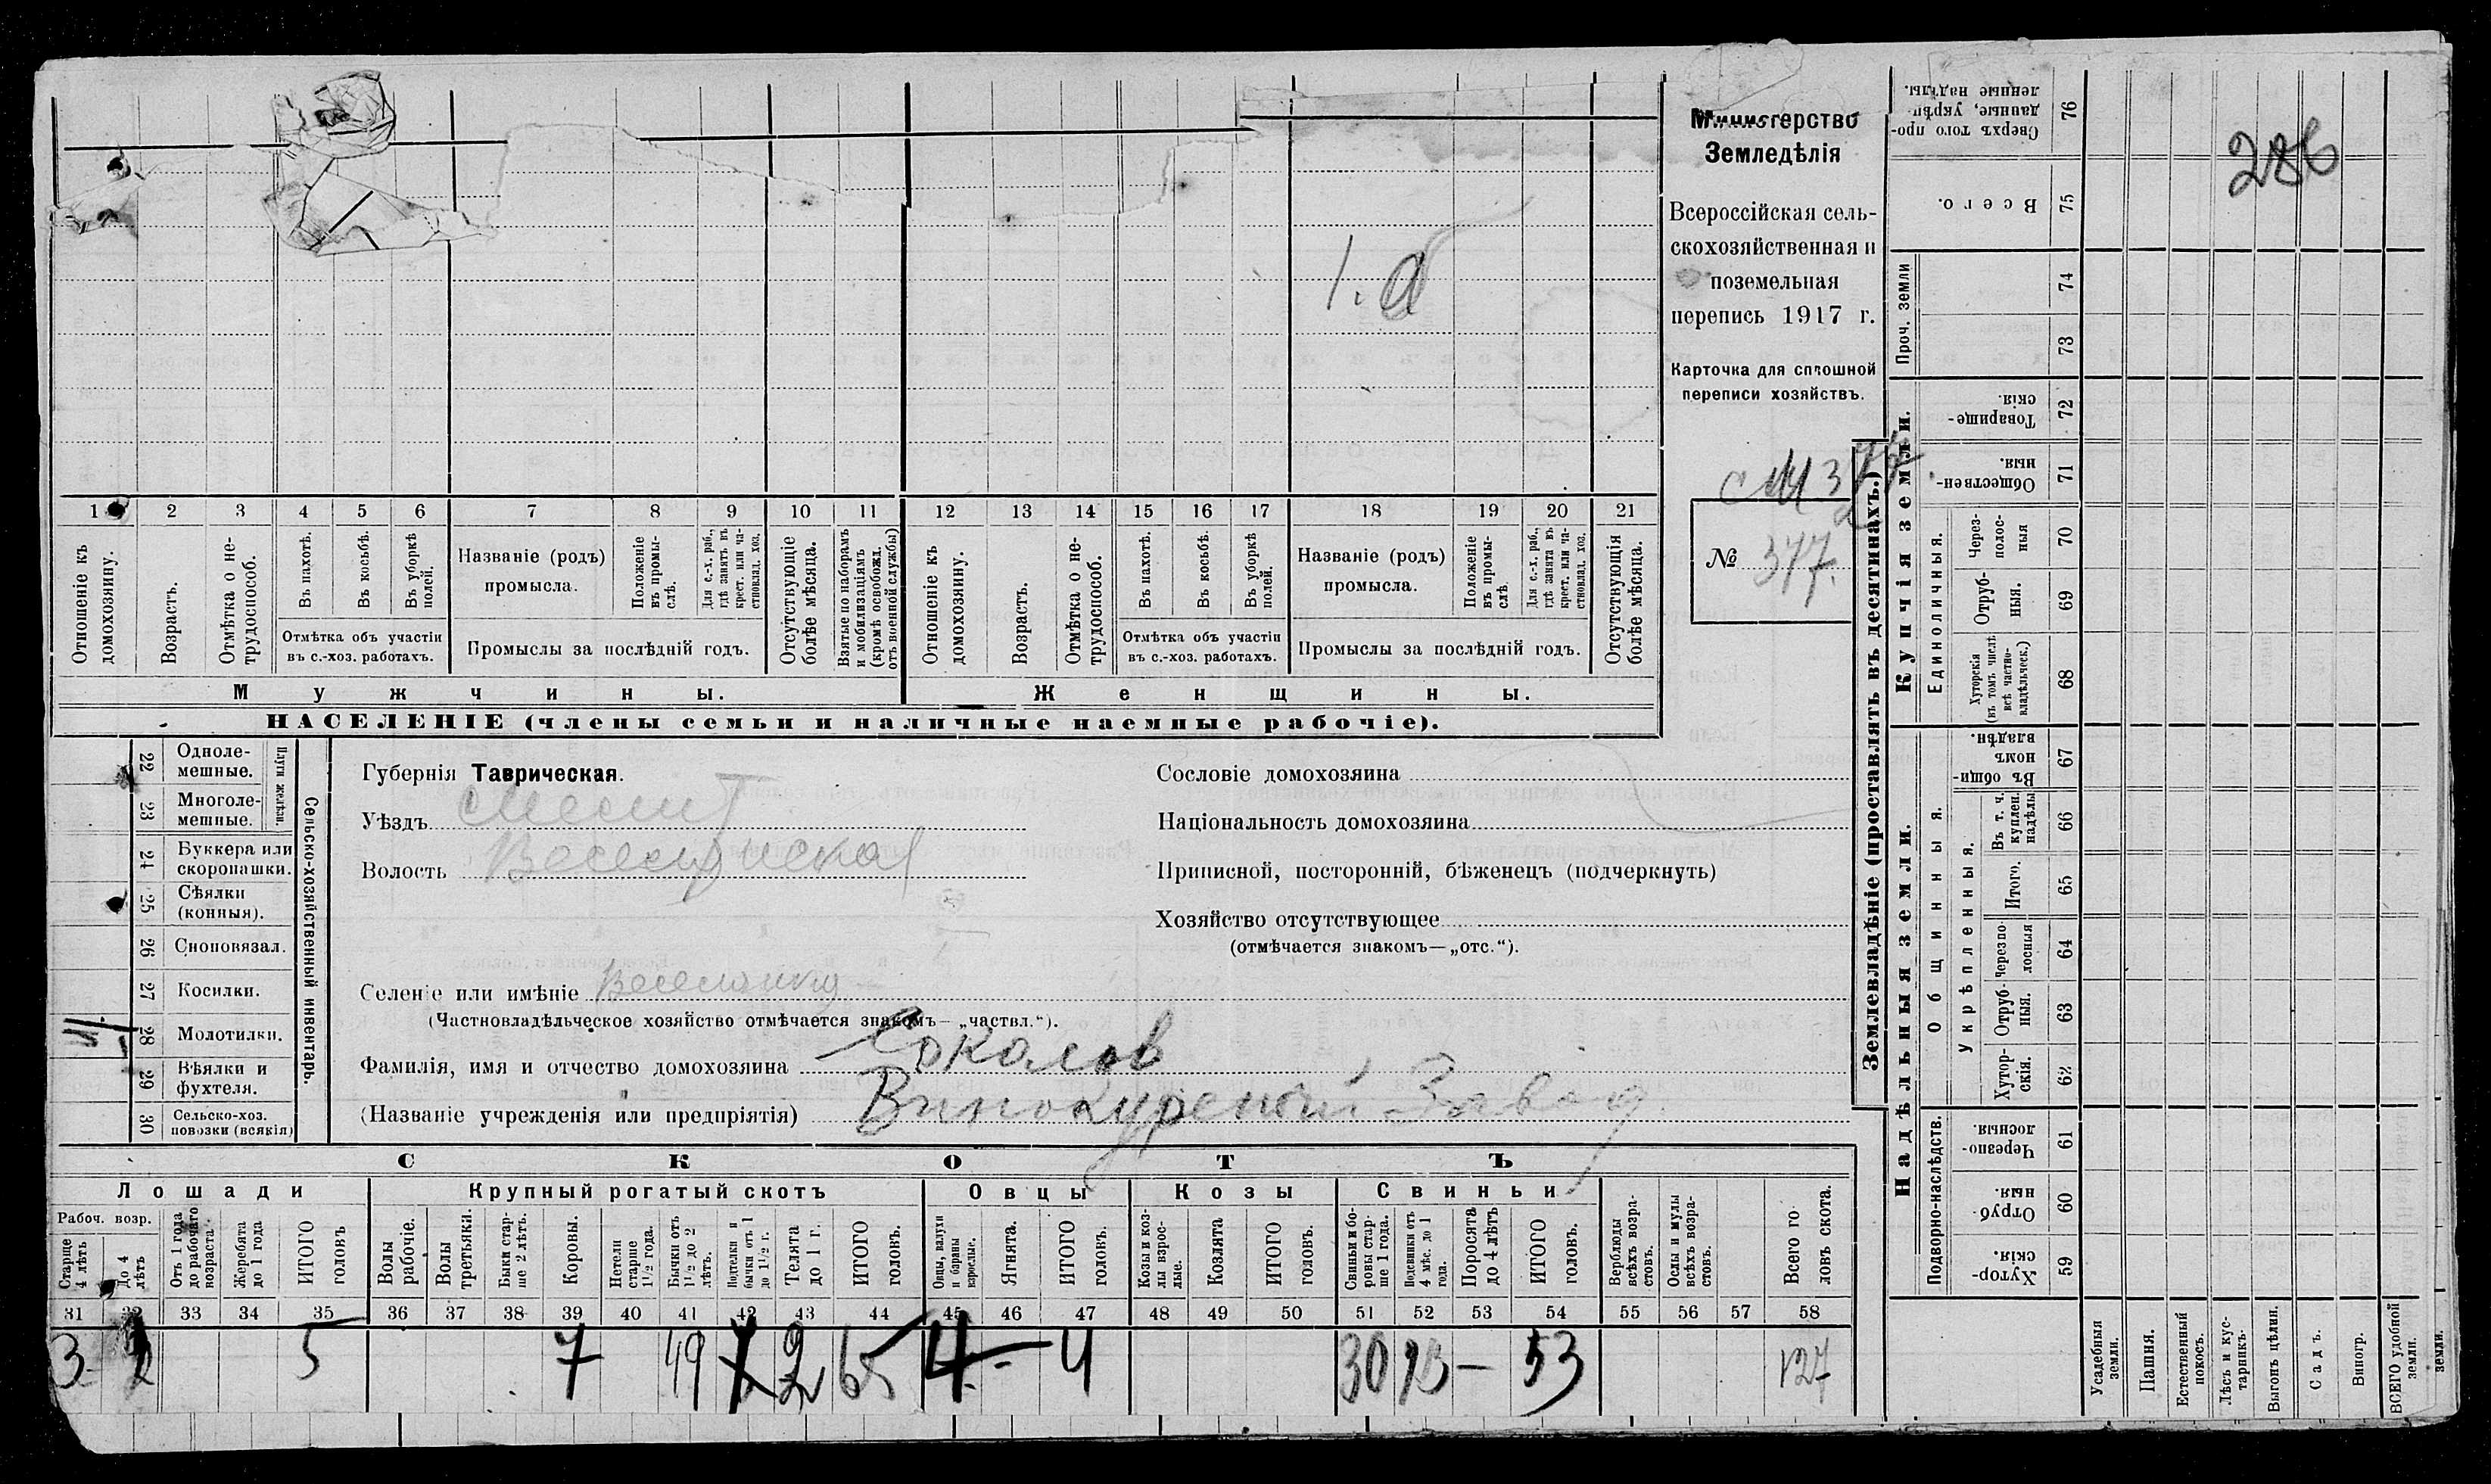 Министерство
Земледѣлія
Всероссійская сель-
скохозяйственная и
поземельная
перепись 1917 г.
Карточка для сплошной
переписи хозяйствъ.
№ 377.
286
1 2 3 4 5 6 7 8 9 10 11 12 13 14 15 16 17 18 19 20 21
Отношеніе къ домохозяину.
Возрастъ.
Отмѣтка о не-трудоспособ.
Въ пахотѣ.
Въ косьбѣ.
Въ уборкѣ полей.
Отмѣтка объ участіи
въ с.-хоз. работахъ.
Названіе (родъ)
промысла.
Положеніе въ промы-слѣ.
Для с.-х. раб., гдѣ занятъ въ крест. или ча-ствовлад. хоз.
Промыслы за послѣдній годъ.
Отсутствующіе болѣе мѣсяца.
Взятые по наборамъ и мобилизаціямъ (кромѣ освобожд. отъ военной службы)
Отношеніе къ домохозяину.
Возрастъ.
Отмѣтка о не-трудоспособ.
Въ пахотѣ.
Въ косьбѣ.
Въ уборкѣ полей.
Отмѣтка объ участіи
въ с.-хоз. работахъ.
Названіе (родъ)
промысла.
Положеніе въ промы-слѣ
Для с.-х. раб., гдѣ занята въ крест. или ча-ствовлад. хоз.
Промыслы за послѣдній годъ.
Отсутствующія болѣе мѣсяца.
Мужчины.
Женщины.
НАСЕЛЕНІЕ (члены семьи и наличные наемные рабочіе).
Сельско-хозяйственный инвентарь.
Плуги желѣзн.
22 Одноле-мешные.
23 Многоле-мешные.
24 Буккера или скоропашки.
25 Сѣялки (конныя).
26 Сноповязал.
27 Косилки.
28 Молотилки.
29 Вѣялки и фухтеля.
30 Сельско-хоз. повозки (всякія)
Губернія Таврическая.
Уѣздъ
Волость
Селеніе или имѣніе
(Частновладѣльческое хозяйство отмѣчается знакомъ—„частвл.“).
Фамилія, имя и отчество домохозяина Соколов
(Названіе учрежденія или предпріятія) Винокуреный Завод
Сословіе домохозяина
Національность домохозяина
Приписной, посторонній, бѣженецъ (подчеркнуть)
Хозяйство отсутствующее
(отмѣчается знакомъ—„отс.“).
СКОТЪ
Лошади
Крупный рогатый скотъ
Овцы
Козы
Свиньи
Рабоч. возр.
Старше 4 лѣтъ
До 4 лѣтъ
Отъ 1 года до рабочаго возраста
Жеребята до 1 года
ИТОГО головъ
Волы рабочіе.
Волы третьяки.
Быки стар-ше 2 лѣтъ.
Коровы.
Нетели старше 1½ года.
Бычки отъ 1½ до 2 лѣтъ.
Подтелки и бычки отъ 1 до 1½ г.
Телята до 1 г.
ИТОГО головъ.
Овцы, валухи и бараны взрослые.
Ягнята.
ИТОГО головъ.
Козы и коз-лы взрос-лые.
Козлята
ИТОГО головъ.
Свиньи и бо-ровы стар-ше 1 года.
Подсвинки отъ 4 мѣс. до 1 года.
Поросята до 4 лѣтъ
ИТОГО головъ.
Верблюды всѣхъ возра-стовъ.
Ослы и мулы всѣхъ возра-стовъ.
Всего го-ловъ скота.
31 32 33 34 35 36 37 38 39 40 41 42 43 44 45 46 47 48 49 50 51 52 53 54 55 56 57 58
3 2 5 7 49 7 2 65 4 - 4 30 23 — 53 127
Землевладѣніе (проставлять въ десятинахъ.)
Надѣльныя земли.
Купчія земли.
Проч. земли
Подворно-наслѣдств.
Общинныя.
Укрѣпленныя.
Единоличныя.
76 Сверхъ того про-данные, укрѣп-ленные надѣлы.
75 Всего.
74
73
72 Товарище-скія.
71 Обществен-ныя.
70 Через-полос-ныя
69 Отруб-ныя.
68 Хуторскія (въ томъ числѣ всѣ частно-владѣльческ.)
67 Въ общин-номъ владѣн.
66 Въ т. ч. куплен. надѣлы
65 Итого.
64 Черезпо-лосныя
63 Отруб-ныя.
62 Хутор-скія.
61 Черезпо-лосныя.
60 Отруб-ныя.
59 Хутор-скія.
Усадебныя земли.
Пашня.
Естественный покосъ.
Лѣсъ и кус-тарникъ.
Выгонъ цѣлин.
Садъ.
Виногр.
ВСЕГО удобной земли.
земли.